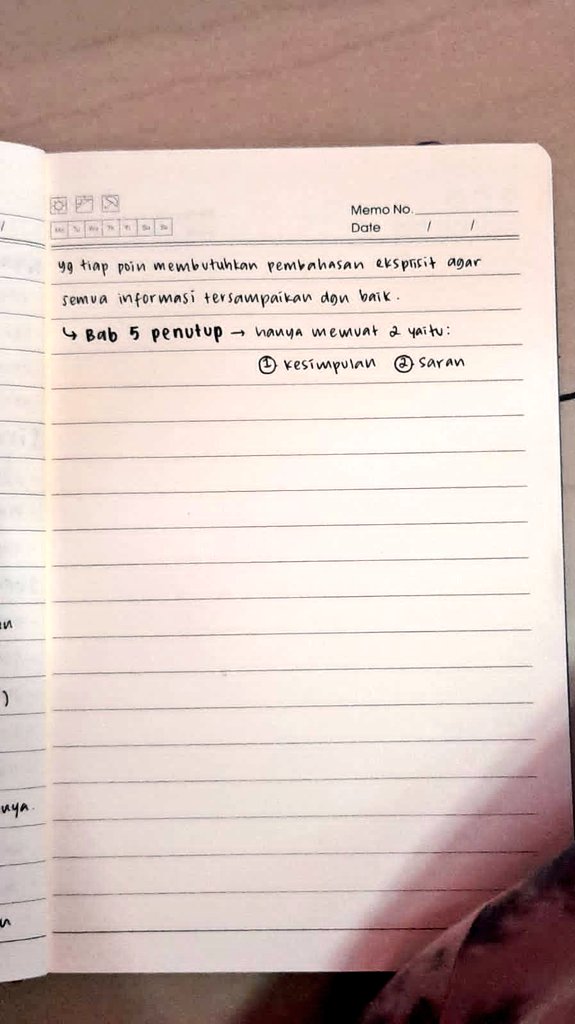 Memo No.
Mo Tu We Th Fr Sa Su
Date / /
yg tiap poin membutuhkan pembahasan eksplisit agar
semua informasi tersampaikan dgn baik.
↳ Bab 5 penutup → hanya memuat 2 yaitu:
① kesimpulan ② saran
/
)
nya.